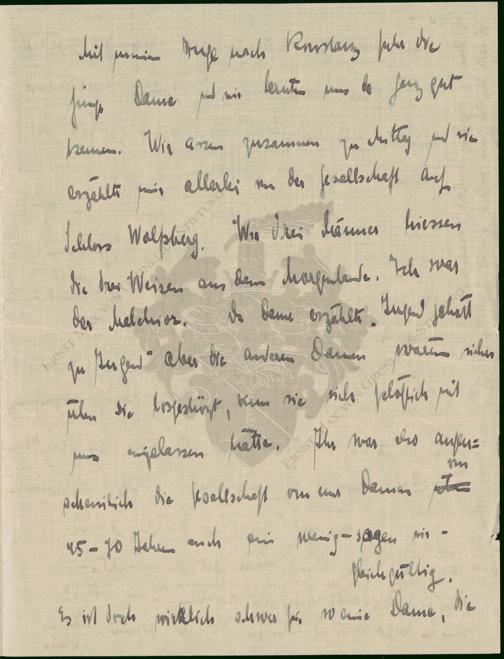 Mit meinem Zuge nach Konstanz fuhr die
junge Dame und wir lernten uns da ganz gut
kennen. Wir assen zusammen zu Mittag und sie
erzählte mir allerlei von der Gesellschaft auf
Schloss Wolfsberg. Wir drei Männer hiessen
die drei Weisen aus dem Morgenlande. Ich war
der Melchior. Die Dame erzählte „Jugend gehört
zu Jugend" aber die anderen Damen wären sicher
über sie losgestürzt, wenn sie sich plötzlich mit
uns eingelassen hätte. Ihr war also augen=
scheinlich die Gesellschaft von nur Damen von
45-70 Jahren auch ein wenig - sagen wir -
gleichgültig.
Es ist doch wirklich schwer für so eine Dame, die
ERNST VON